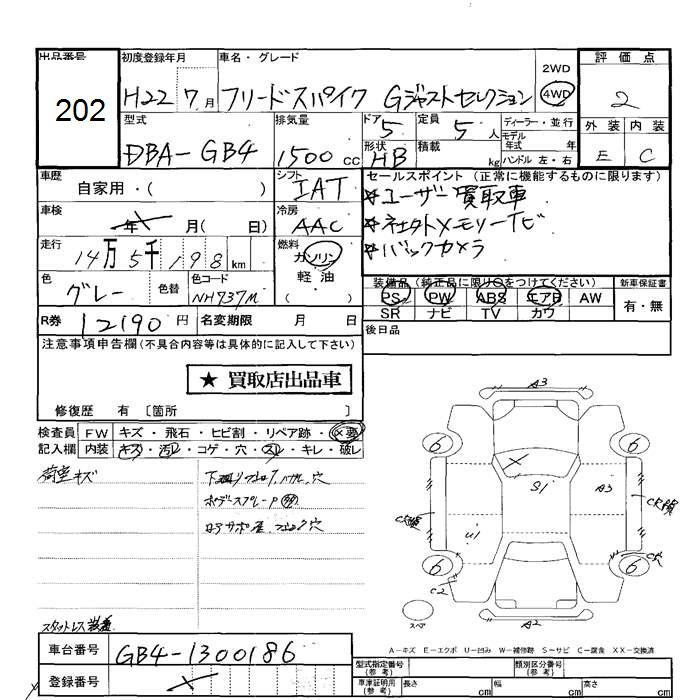 出品番号 初度登録年月 車名・グレード 評価点
202
H22 7月 フリードスパイク Gジャストセレクション 2WD 4WD 2
型式 排気量 ドア 5 定員 5人 ディーラー・並行 外装 内装
DBA-GB4 1500cc 形状 HB 積載 kg モデル年式 年 ハンドル 左・右 E C
車歴 自家用・( ) シフト IAT セールスポイント (正常に機能するものに限ります)
車検 年 月( 日) 冷房 AAC ※ユーザー買取車
走行 14万5千198km 燃料 ガソリン 軽油 ( )
※バックカメラ
色 グレー 色替 色コード NH737M 装備品(純正品に限り○をつけてください) 新車保証書
PS PW ABS エアB AW 有・無
SR ナビ TV カワ
R券 12190円 名変期限 月 日 後日品
注意事項申告欄(不具合内容等は具体的に記入して下さい)
★ 買取店出品車
修復歴 有 〔箇所 〕
検査員 FW キズ・飛石・ヒビ割・リペア跡・×要
記入欄 内装 キズ・汚れ・コゲ・穴・スレ・キレ・破レ
荷室キズ
A3
6 6
S1 A3
U1
6 6
C2
スペ
A2
スタットレス装着
A-キズ E-エクボ U-凹み W-補修跡 S-サビ C-腐食 XX-交換済
車台番号 GB4-1300186
登録番号
型式指定番号(参考) 類別区分番号(参考)
車庫証明用(参考) 長さ cm 幅 cm 高さ cm